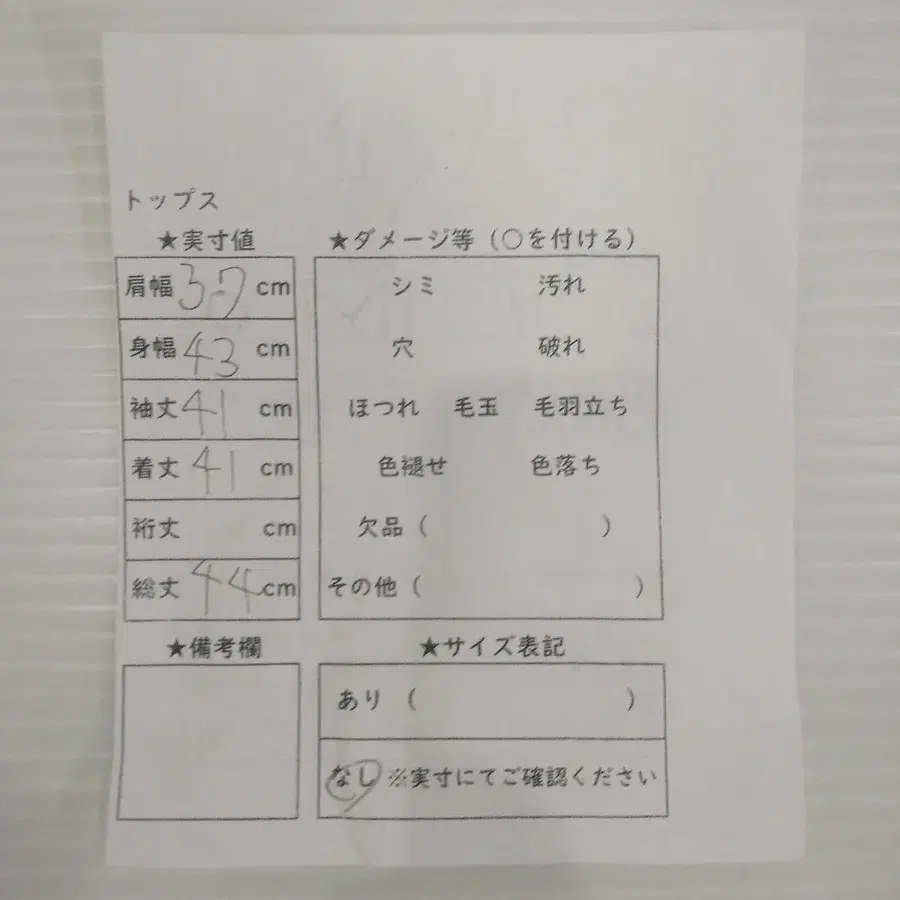 トップス
★実寸値
肩幅 37 cm
身幅 43 cm
袖丈 41 cm
着丈 41 cm
裄丈 cm
総丈 44 cm
★ダメージ等（○を付ける）
シミ 汚れ
穴 破れ
ほつれ 毛玉 毛羽立ち
色褪せ 色落ち
欠品（ ）
その他（ ）
★備考欄
★サイズ表記
あり （ ）
なし ※実寸にてご確認ください